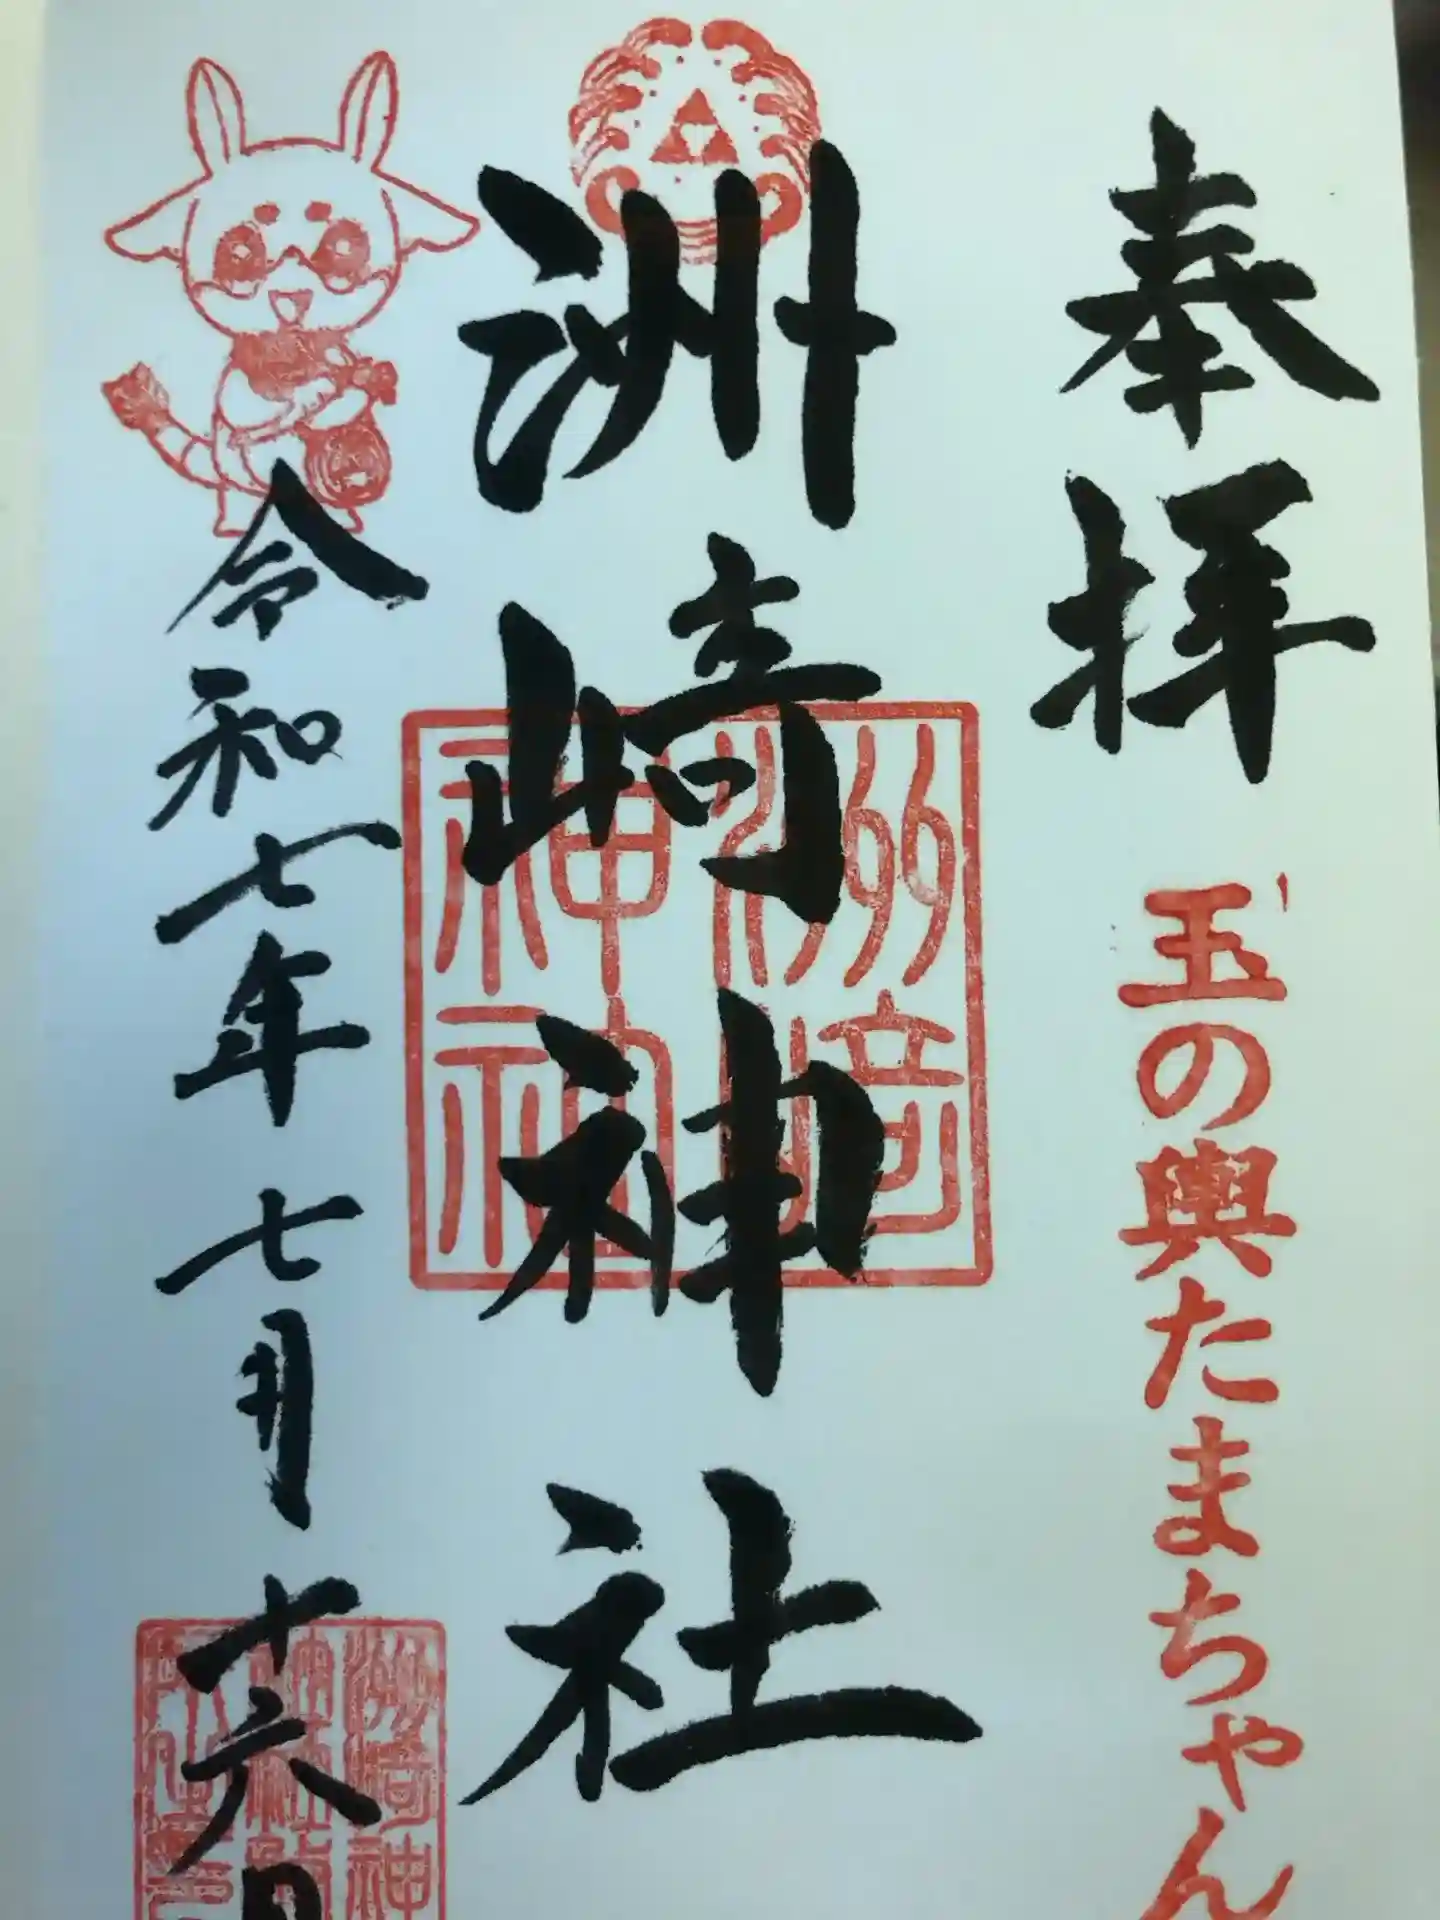 奉拝
玉の輿たまちゃん
洲崎神社
洲崎神社
令和七年七月十六日